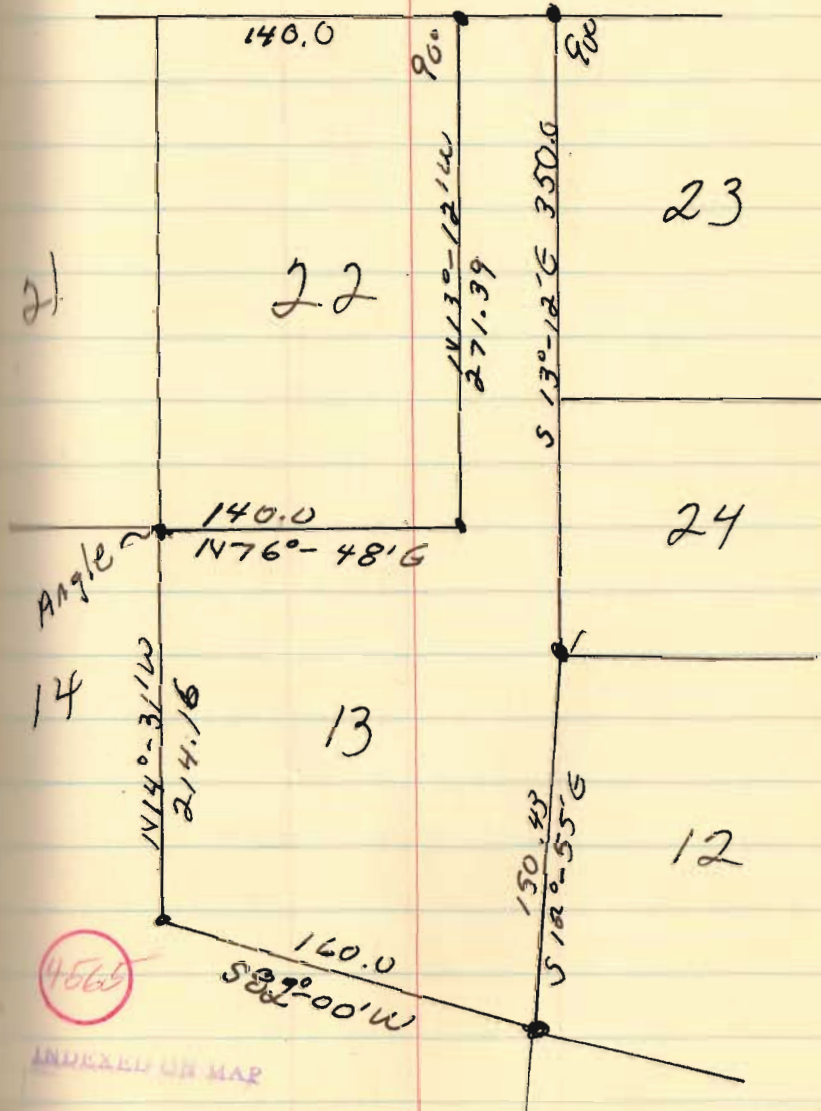 140.0
90°
90°
N 13°-12' W
271.39
S 13°-12' E 350.0
23
21
22
140.0
N 76°-48' E
24
Angle
14
N 14°-31' W
214.16
13
150.43
12
160.0
4565
INDEXED ON MAP